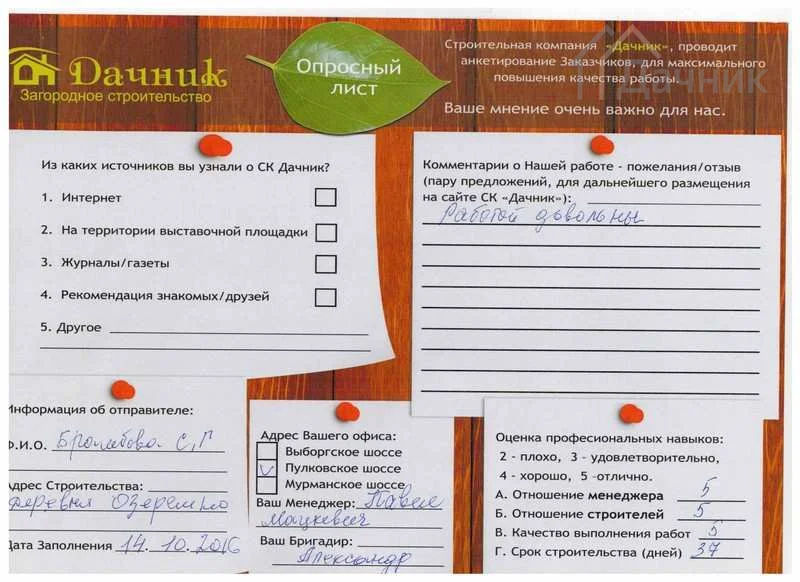 Дачник
Загородное строительство
Опросный
лист
Строительная компания «Дачник», проводит
анкетирование Заказчиков, для максимального
повышения качества работы.
Ваше мнение очень важно для нас.
Дачник
Из каких источников вы узнали о СК Дачник?
1. Интернет
2. На территории выставочной площадки
3. Журналы/газеты
4. Рекомендация знакомых/друзей
5. Другое
Комментарии о Нашей работе - пожелания/отзыв
(пару предложений, для дальнейшего размещения
на сайте СК «Дачник»):
Работой довольны
Информация об отправителе:
Ф.И.О. С,Г
Адрес Строительства:
деревня
Дата Заполнения 14. 10. 2016
Адрес Вашего офиса:
Выборгское шоссе
Пулковское шоссе
Мурманское шоссе
Ваш Менеджер: Павел
Мацкевич
Ваш Бригадир:
Александр
Оценка професиональных навыков:
2 - плохо, 3 - удовлетворительно,
4 - хорошо, 5 -отлично.
А. Отношение менеджера 5
Б. Отношение строителей 5
В. Качество выполнения работ 5
Г. Срок строительства (дней) 37